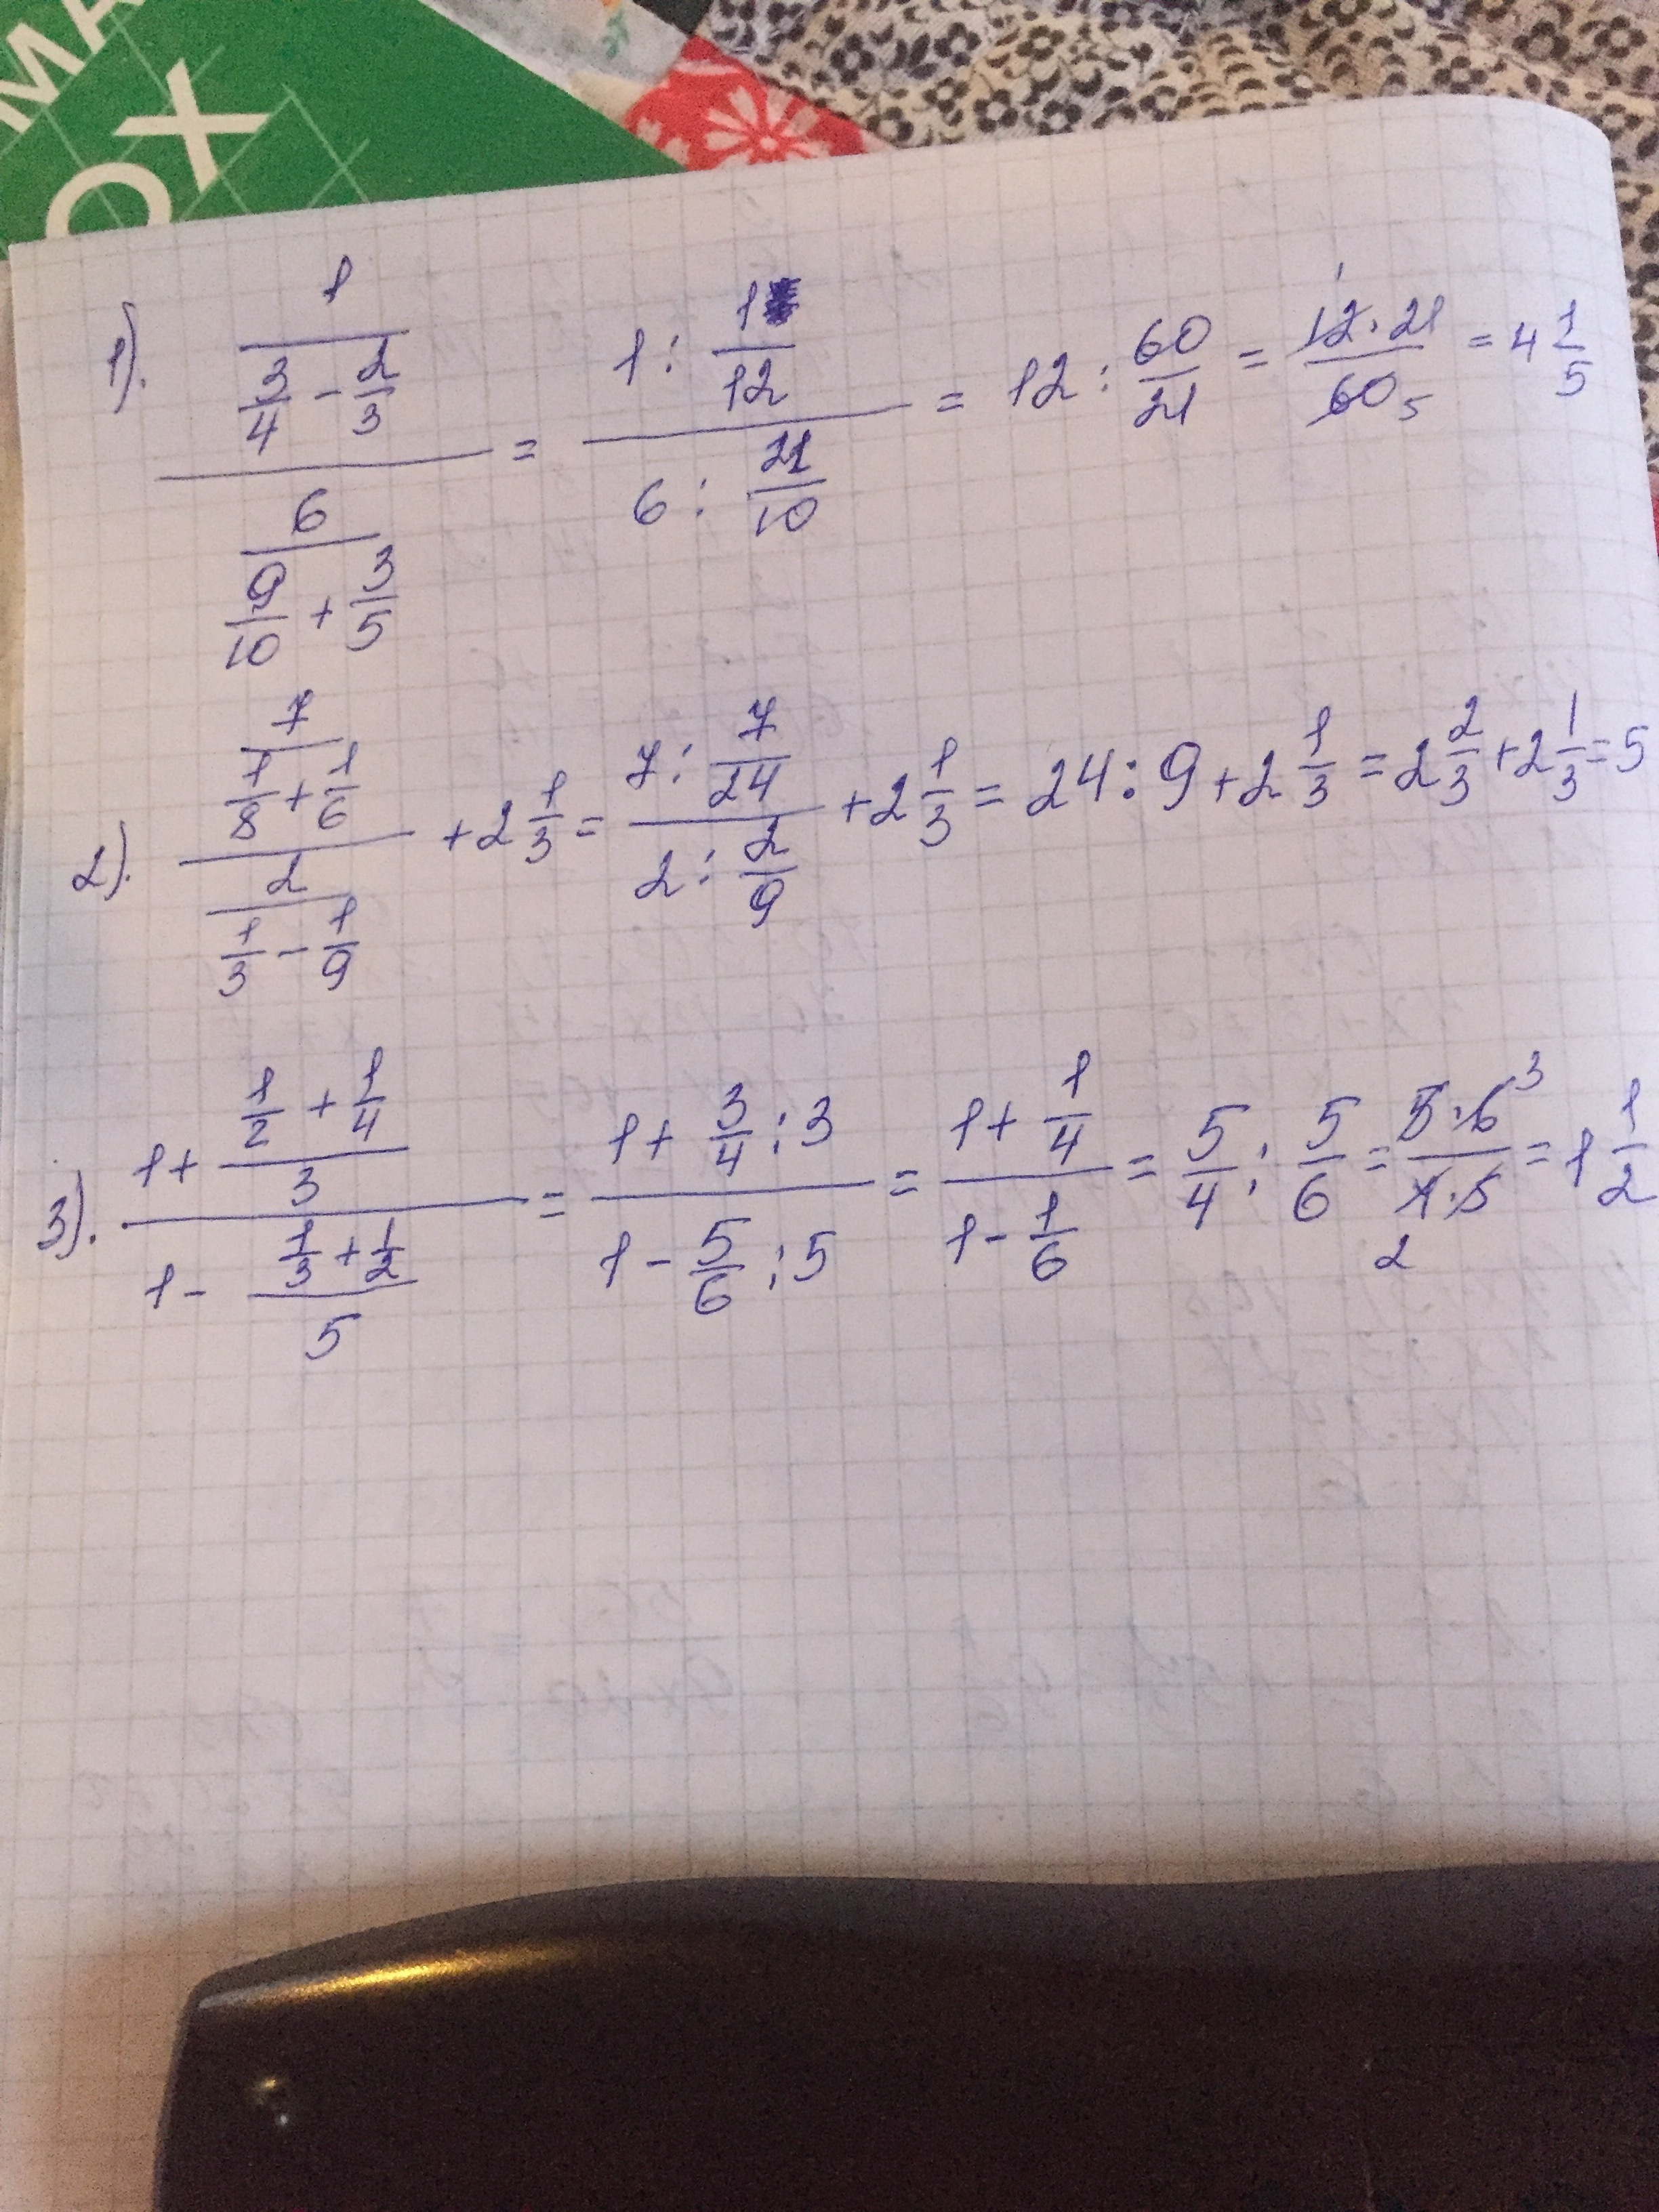 МА
ОХ
1). (1/(3/4 - 2/3))/(6/(9/10 + 3/5)) = (1 : 1/12)/(6 : 21/10) = 12 : 60/21 = (12 · 21)/60 1 5 = 4 1/5
2). (7/(1/8 + 1/6))/(2/(1/3 - 1/9)) + 2 1/3 = (7 : 7/24)/(2 : 2/9) + 2 1/3 = 24 : 9 + 2 1/3 = 2 2/3 + 2 1/3 = 5
3). (1 + (1/2 + 1/4)/3)/(1 - (1/3 + 1/2)/5) = (1 + 3/4 : 3)/(1 - 5/6 : 5) = (1 + 1/4)/(1 - 1/6) = 5/4 : 5/6 = (5 · 6)/(4 · 5) 3 2 = 1 1/2